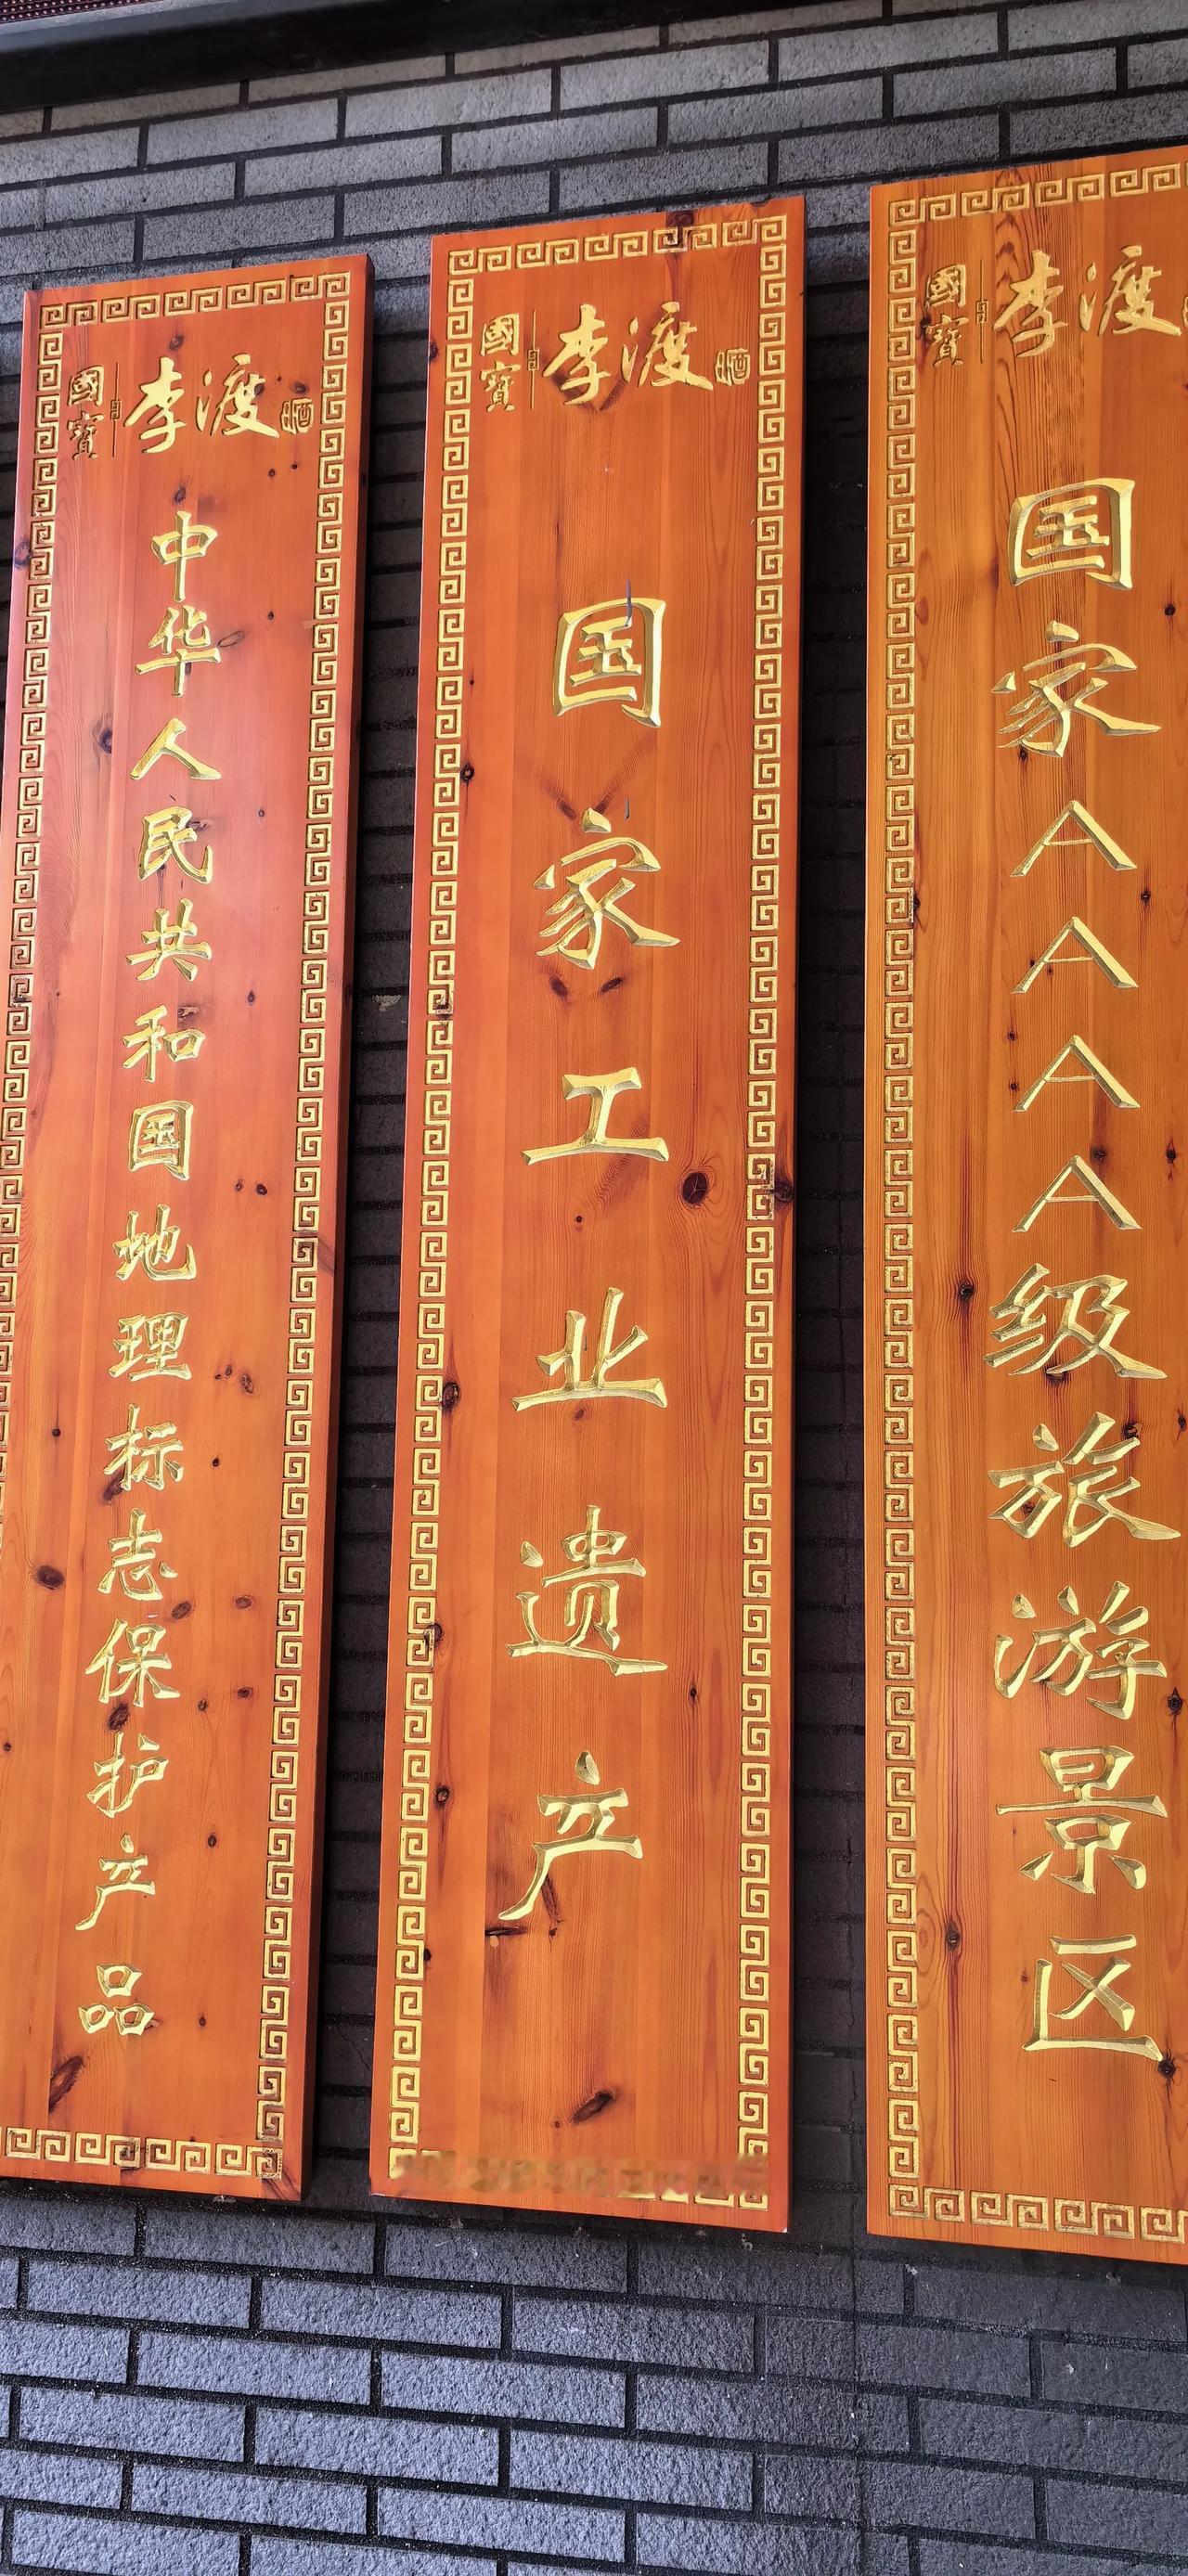 國寶 李渡 酒
中华人民共和国地理标志保护产品
國寶 李渡 酒
国家工业遗产
國寶 李渡
国家AAAA级旅游景区